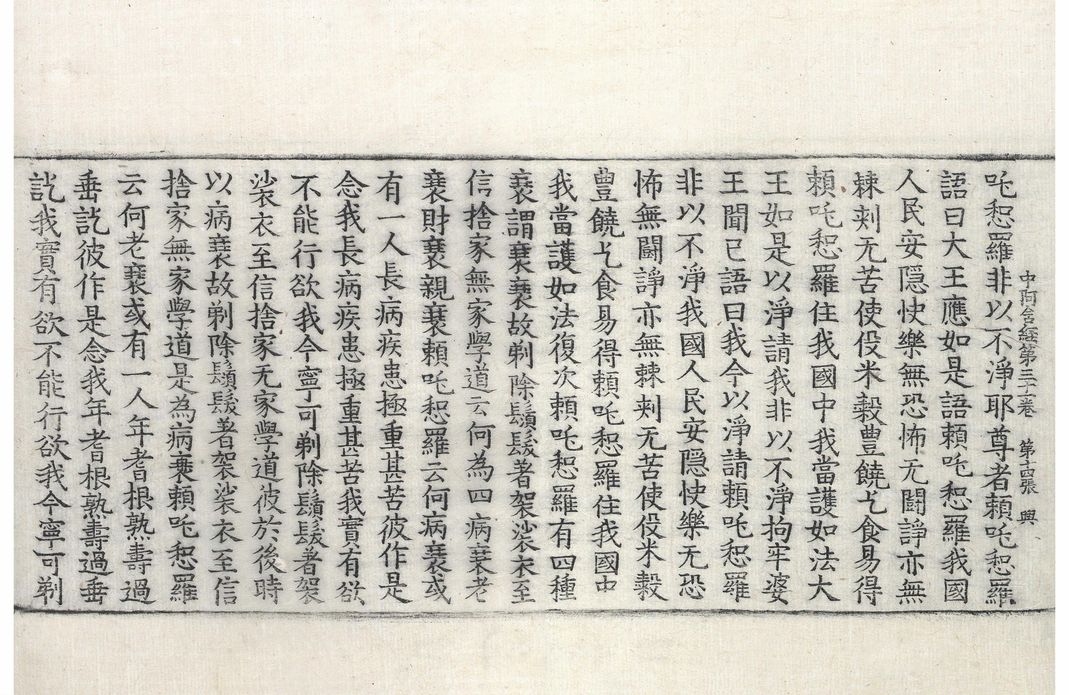 中阿含経第三十一卷 第十四張 興
吒惒羅非以不淨耶尊者頼吒惒羅
語曰大王應如是語頼吒惒羅我國
人民安隠快樂無恐怖无闘諍亦無
棘刾无苦使役米穀豊饒乞食易得
頼吒惒羅住我國中我當護如法大
王如是以淨請我非以不淨拘牢婆
王聞已語曰我今以淨請頼吒惒羅
非以不淨我國人民安隠快樂无恐
怖無闘諍亦無棘刾无苦使役米穀
豊饒乞食易得頼吒惒羅住我國中
我當護如法復次頼吒惒羅有四種
衰謂衰衰故剃除鬚髮著袈裟衣至
信捨家無家學道云何為四病衰老
衰財衰親衰頼吒惒羅云何病衰或
有一人長病疾患極重甚苦彼作是
念我長病疾患極重甚苦我實有欲
不能行欲我今寧可剃除鬚髮著袈
裟衣至信捨家无家學道彼於後時
以病衰故剃除鬚髮著袈裟衣至信
捨家無家學道是為病衰頼吒惒羅
云何老衰或有一人年耆根熟壽過
垂訖彼作是念我年耆根熟壽過垂
訖我實有欲不能行欲我今寧可剃